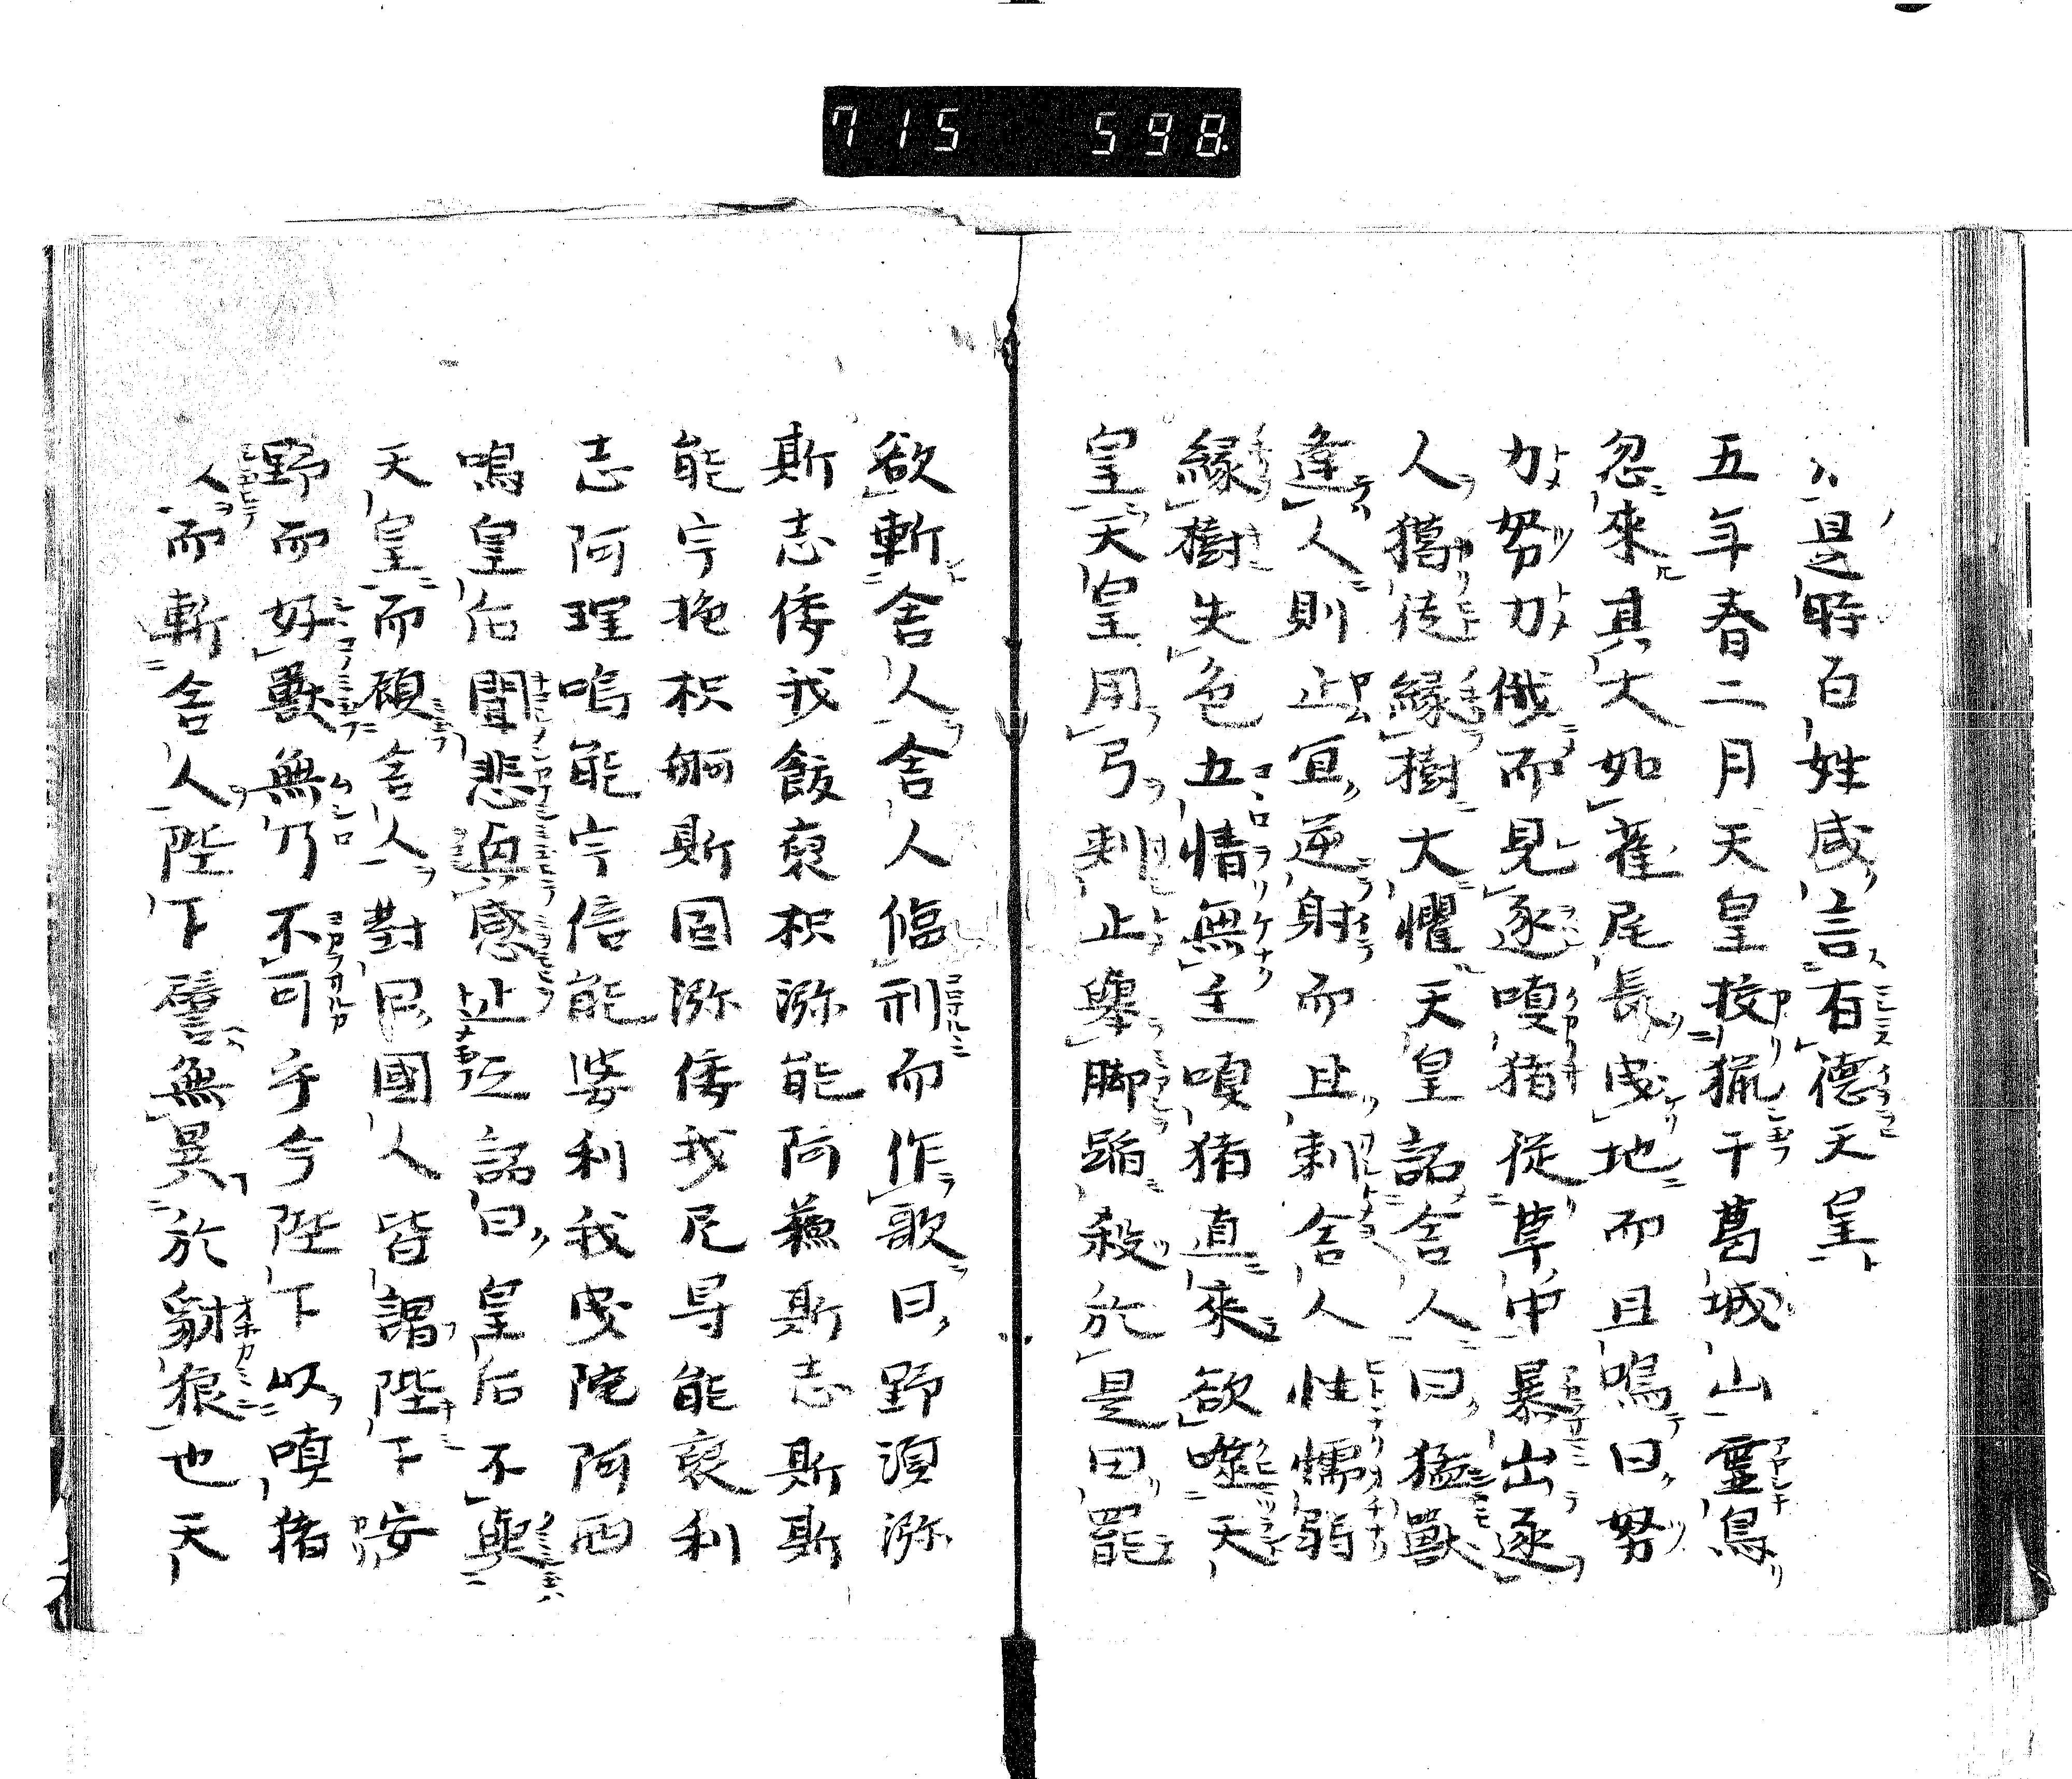 715 598
人是時百姓咸言有德天皇
五年春二月天皇挍獦于葛城山靈鳥
忽來其大如雀尾長曳地而且鳴曰努
力努力俄而見逐嗔猪從草中暴出逐
人獦徒緣樹大懼天皇詔舍人曰猛獸
逢人則止宜逆射而且刺舍人性懦弱
緣樹失色五情無主嗔猪直來欲噬天
皇天皇用弓刺止舉脚踏殺於是田罷
欲斬舍人舍人臨刑而作歌曰野須瀰
斯志倭我飫裒枳瀰能阿蘇斯志斯斯
能宇拖枳舸斯固瀰倭我尼㝵能裒利
志阿理嗚能宇倍能婆利我曳陁阿西
鳴皇后聞悲興感止之詔曰皇后不與
天皇而顧舍人對曰國人皆謂陛下安
野而好獸無乃不可乎今陛下以嗔猪
人而斬舍人陛下譬無異於豺狼也天